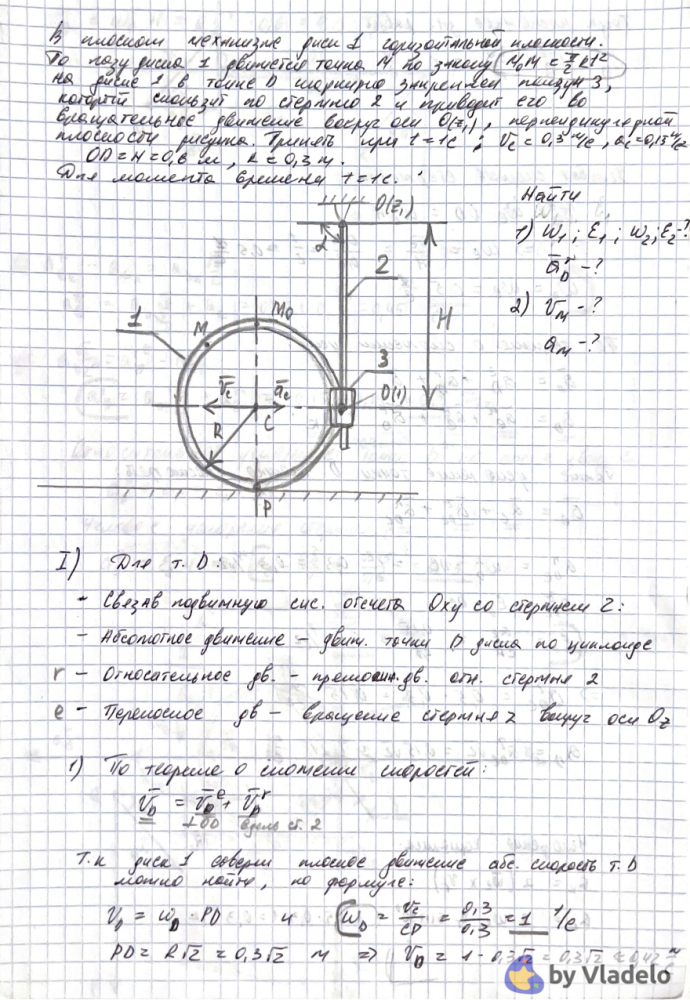 В плоском механизме диск 1 горизонтальной плоскости.
По пазу диска 1 движется точка M по закону M₀M = π/2 Rt²
На диске 1 в точке D шарнирно закреплён ползун 3,
который скользит по стержню 2 и приводит его во
вращательное движение вокруг оси O(z₁), перпендикулярной
плоскости рисунка. Принять при t=1c : Vc = 0,3 м/с, ac=0,15 м/с
OD=H=0,6 м, R=0,3 м.
Для момента времени t=1c.
Найти
1) ω₁; ε₁; ω₂; ε₂-?
a̅ᴅʳ -?
2) V̅ᴍ -?
aᴍ -?
O(z₁)
α
2
H
1
M
M₀
3
V̅c
a̅c
D(1)
C
R
P
I) Для т. D:
- Связав подвижную сис. отсчета Oxy со стержнем 2:
- Абсолютное движение - движ. точки D диска по циклоиде
r - Относительное дв. - прямолин. дв. отн. стержня 2
e - Переносное дв - вращение стержня 2 вокруг оси Oz
1) По теореме о сложении скоростей:
V̅ᴅ = V̅ᴅᵉ + V̅ᴅʳ
⊥OD вдоль ст. 2
Т.к диск 1 соверш плоское движение абс. скорость т. D
можно найти, по формуле:
Vᴅ = ωᴅ · PD и ωᴅ = Vc/CD = 0,3/0,3 = 1 1/c
PD = R√2 = 0,3√2 м => Vᴅ = 1 · 0,3√2 = 0,3√2 ≈ 0,42 м
by Vladelo